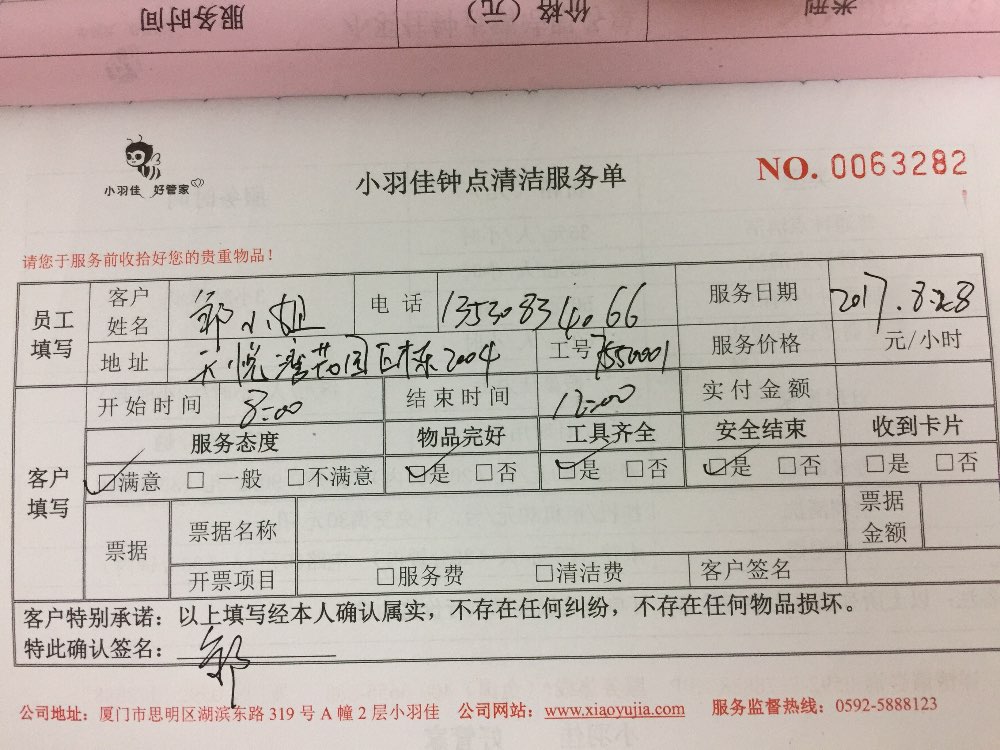 服务时间 价格（元） 类别
小羽佳 好管家
小羽佳钟点清洁服务单
NO. 0063282
请您于服务前收拾好您的贵重物品！
员工填写 客户姓名 郭小姐 电话 13530834066 服务日期 2017.8.28
地址 天悦湾花园 2004 工号 7550001 服务价格 元/小时
客户填写 开始时间 8:00 结束时间 12:00 实付金额
服务态度 物品完好 工具齐全 安全结束 收到卡片
☑满意 □一般 □不满意 ☑是 □否 ☑是 □否 ☑是 □否 □是 □否
票据 票据名称 票据金额
开票项目 □服务费 □清洁费 客户签名
客户特别承诺：以上填写经本人确认属实，不存在任何纠纷，不存在任何物品损坏。
特此确认签名：郭
公司地址：厦门市思明区湖滨东路 319 号 A 幢 2 层小羽佳 公司网站：www.xiaoyujia.com 服务监督热线：0592-5888123